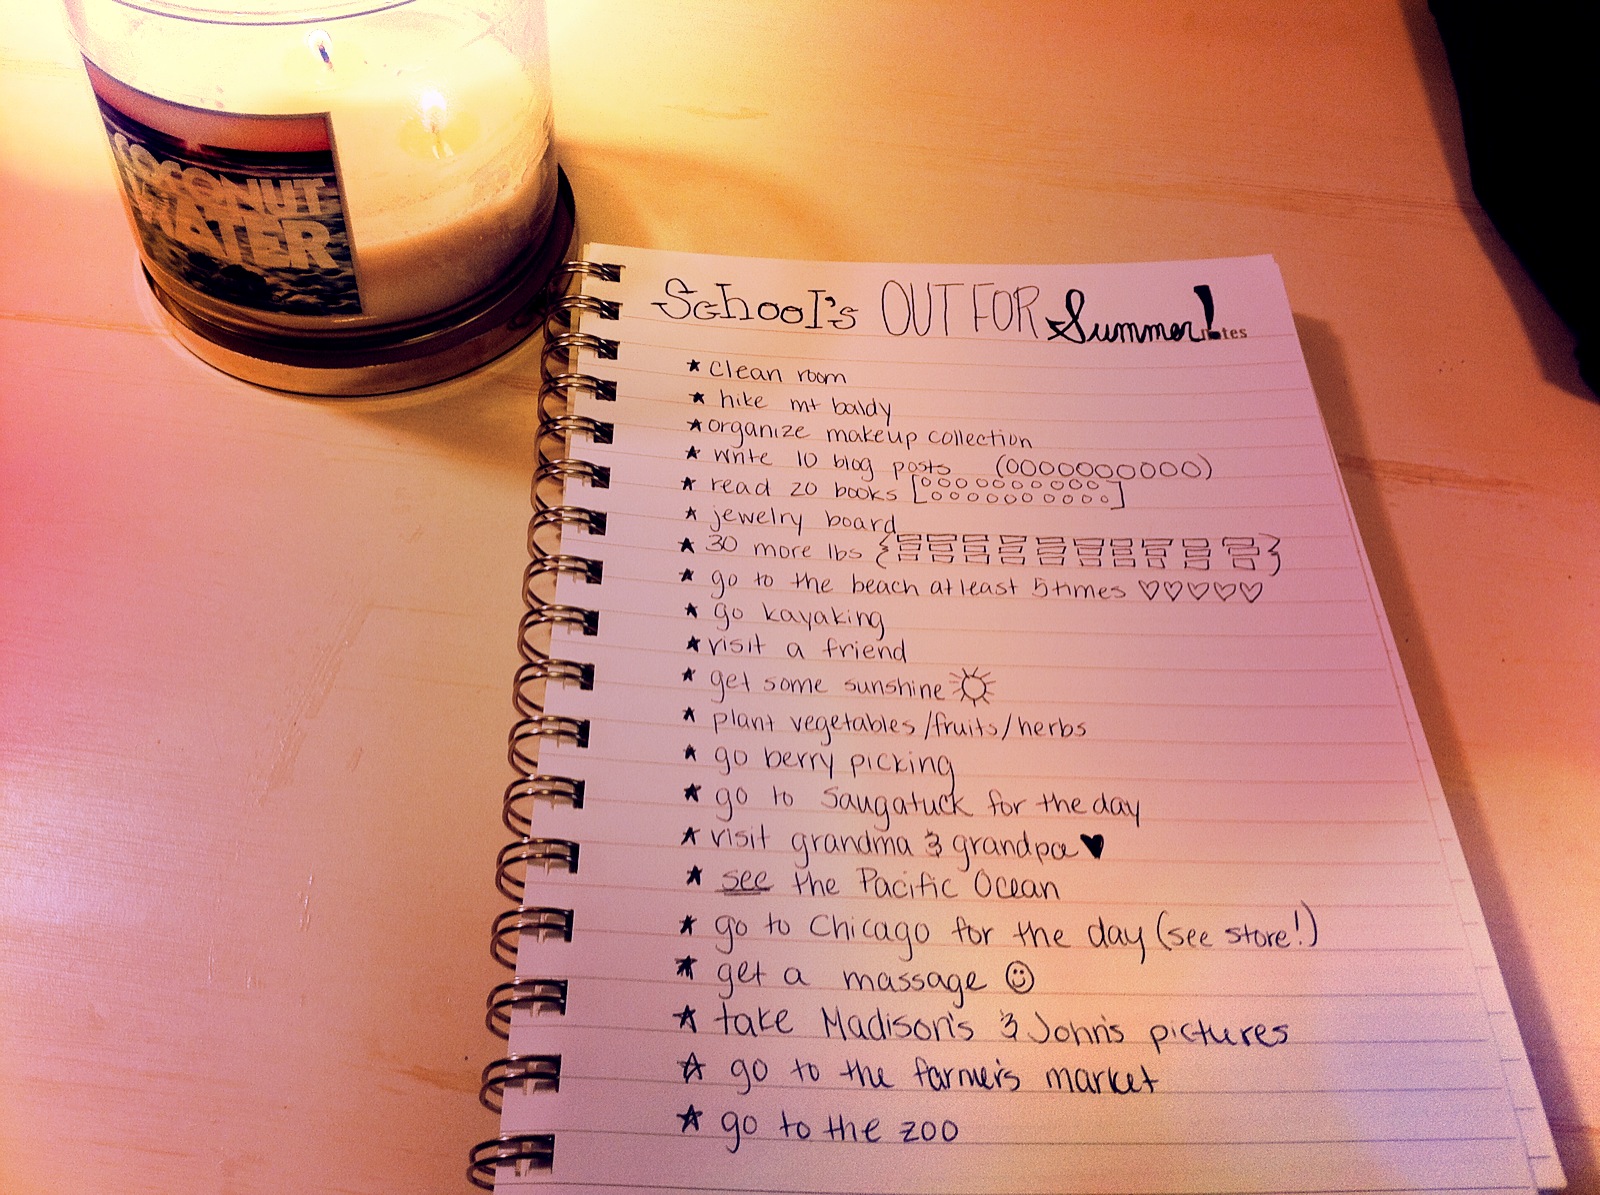 COCONUT
WATER
School's OUT FOR Summer!
tes
★ clean room
★ hike mt baldy
★ organize makeup collection
★ write 10 blog posts (OOOOOOOOOO)
★ read 20 books [oooooooooo
oooooooooo]
★ jewelry board
★ 30 more lbs { }
★ go to the beach at least 5 times ♡♡♡♡♡
★ go kayaking
★ visit a friend
★ get some sunshine ☼
★ plant vegetables/fruits/herbs
★ go berry picking
★ go to Saugatuck for the day
★ visit grandma & grandpa ♥
★ see the Pacific Ocean
★ go to Chicago for the day (see store!)
★ get a massage ☺
★ take Madison's & John's pictures
★ go to the farmer's market
★ go to the zoo